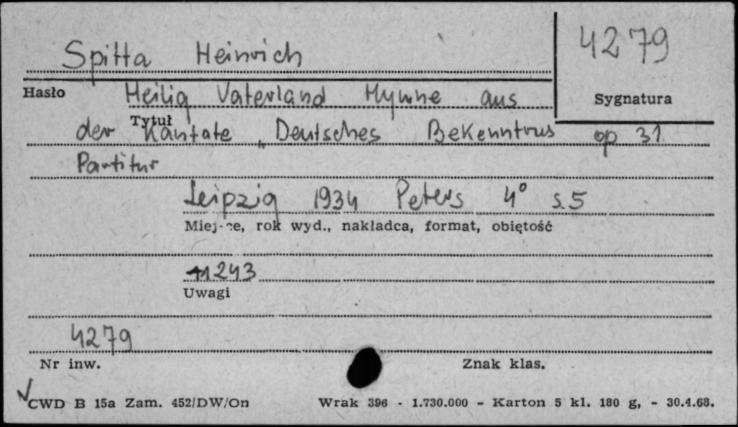 4279
Spitta Heinrich
Hasło
Heilig Vaterland Hymne aus
Sygnatura
Tytuł
der Kantate „Deutsches Bekenntnus op 31
Partitur
Leipzig 1934 Peters 4° s.5
Miejsce, rok wyd., nakładca, format, objętość
11243
Uwagi
4279
Nr inw.
Znak klas.
CWD B 15a Zam. 452/DW/On
Wrak 396 - 1.730.000 - Karton 5 kl. 180 g, - 30.4.68.